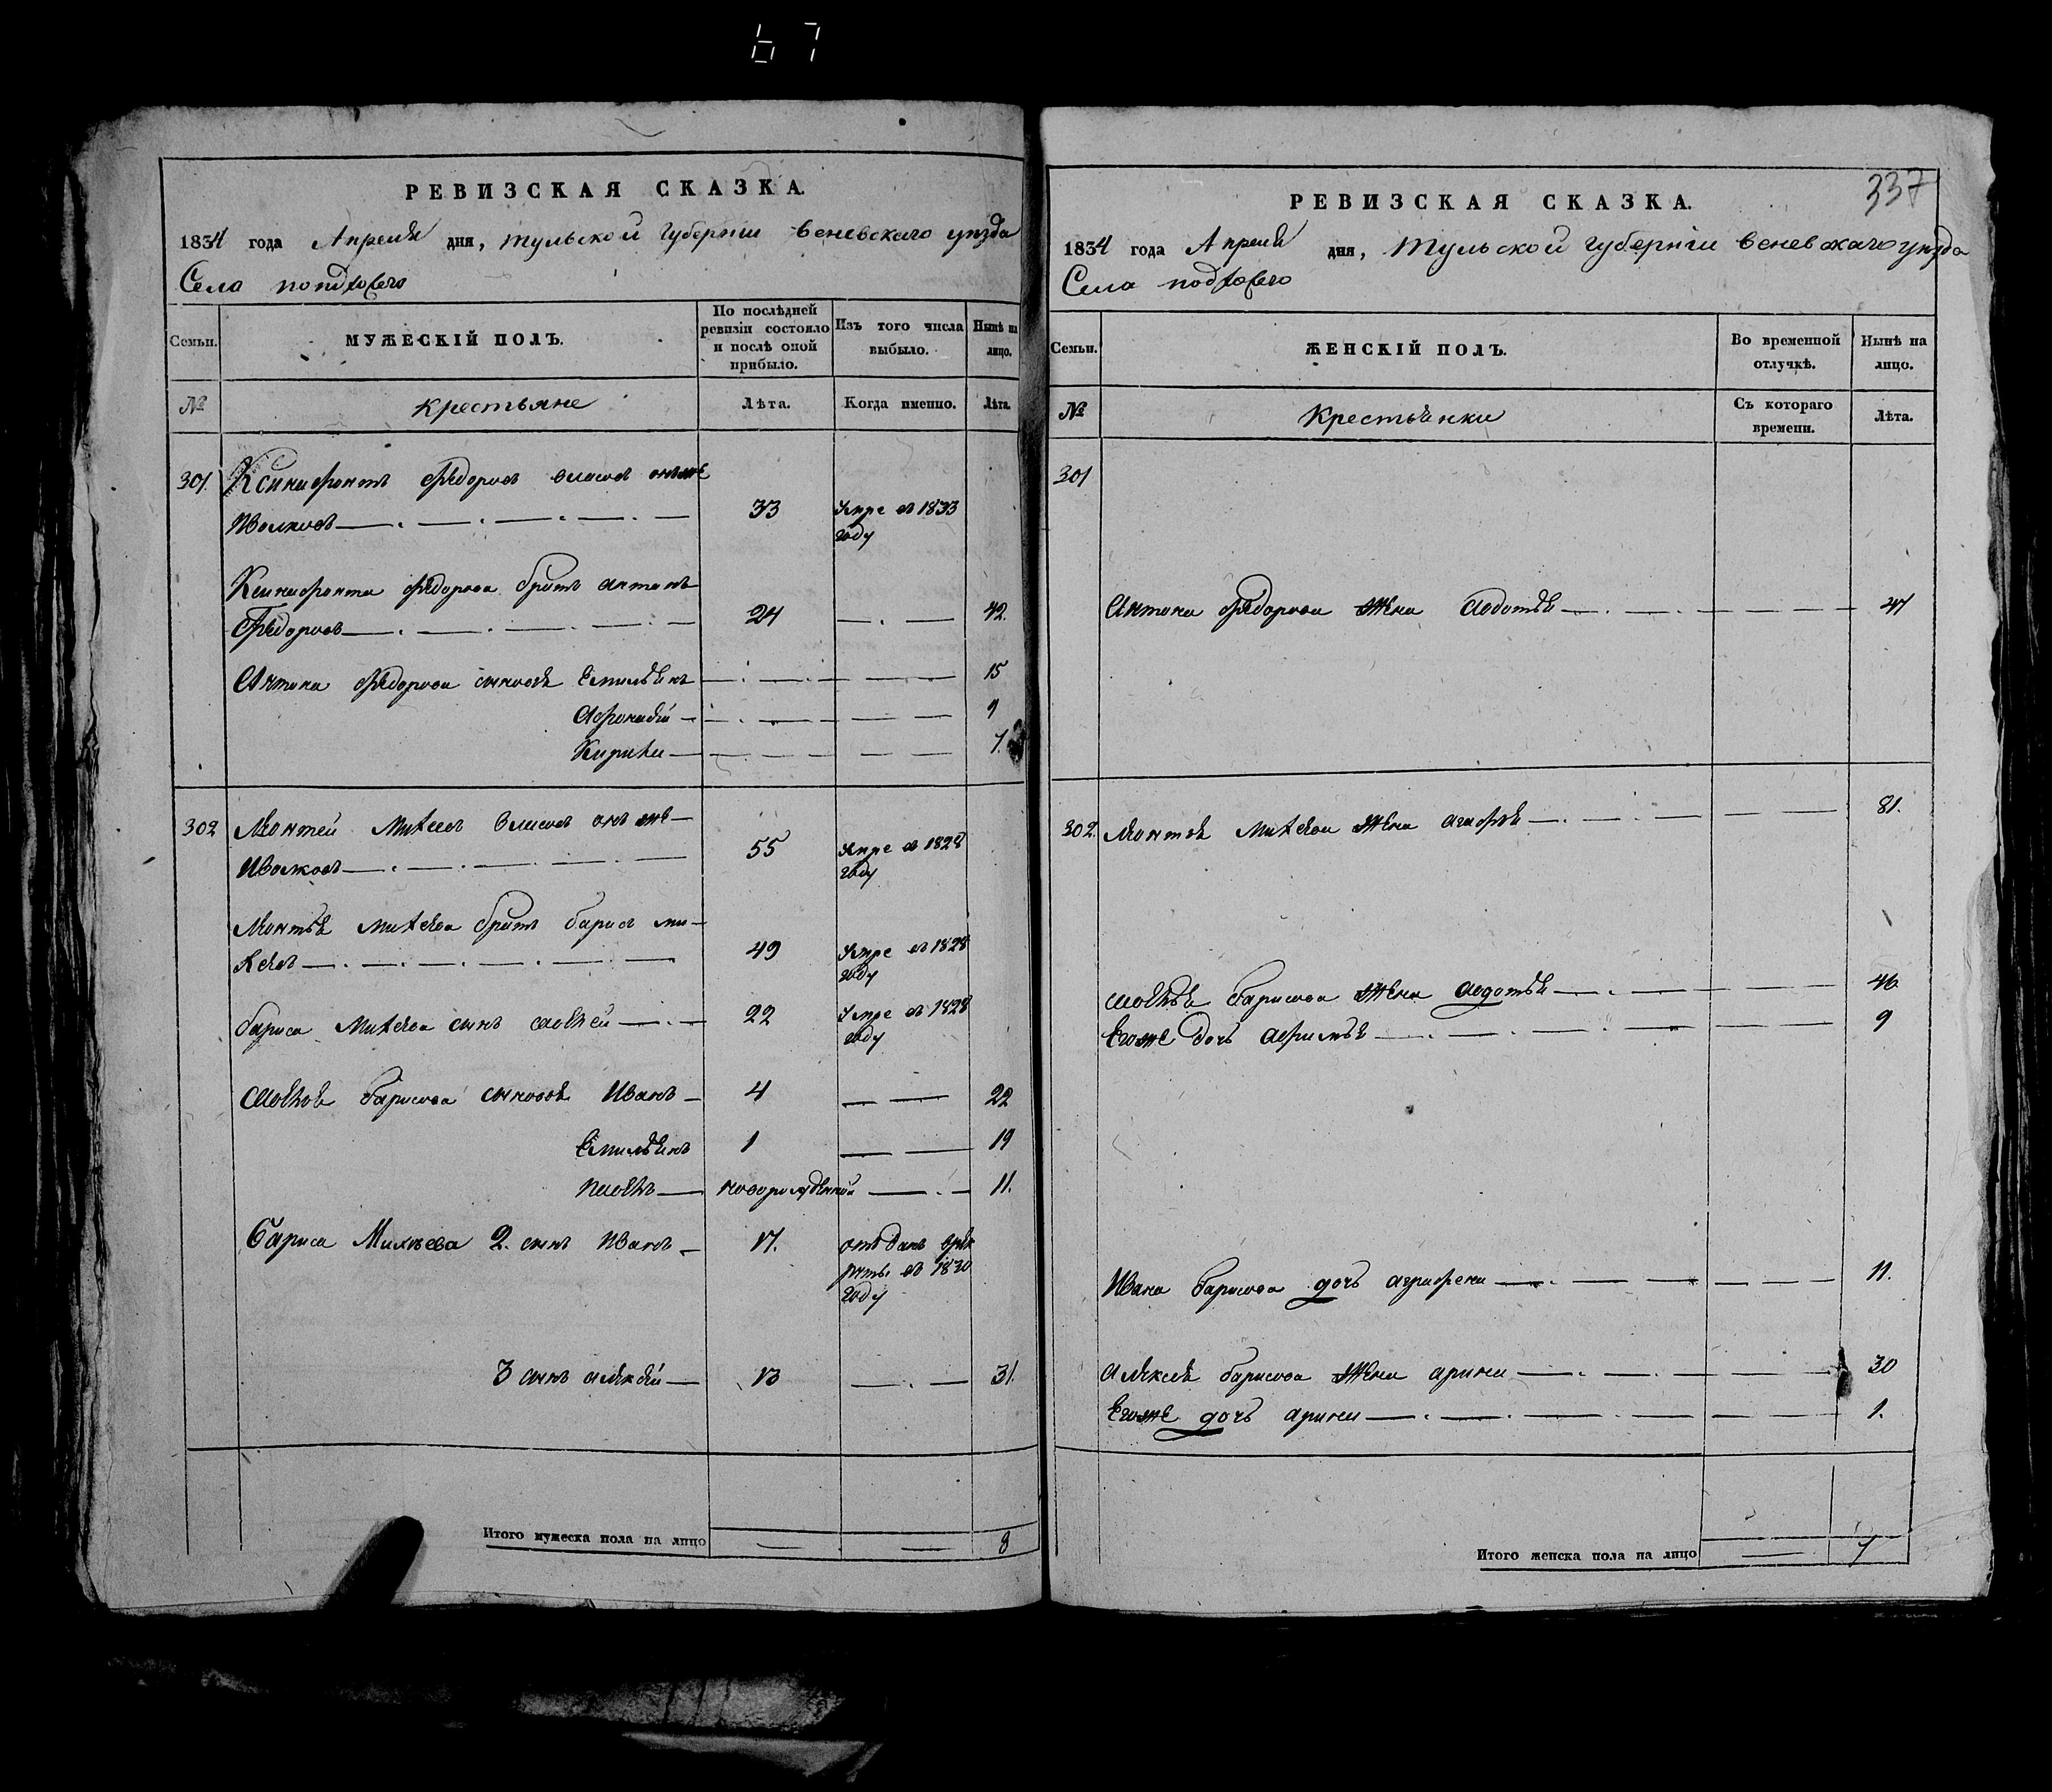 67
РЕВИЗСКАЯ СКАЗКА.
1834 года Апреля дня, тульской губерніи веневскаго уезда
Села
Семьи.
МУЖЕСКІЙ ПОЛЪ.
По послѣдней ревизіи состояло и послѣ оной прибыло.
Изъ того числа выбыло.
Нынѣ на лицо.
№
крестьяне
Лѣта.
Когда именно.
Лѣта.
301. Ксинафонтъ Федоровъ
33 умре въ 1833
году
Ксинафонта Федорова братъ антонъ
Федоровъ 24 42.
Антона Федорова сыновья Емильянъ 15
9
7.
302
55 умре въ 1828
году
братъ барисъ ми
хеевъ 49 умре въ 1828
году
бариса михеева сынъ 22 умре въ 1828
году
барисова сыновья Иванъ 4 22
Емильянъ 1 19
новорожденной 11.
Бариса Михѣева 2. сынъ Иванъ 17. отъданъ врек
руты въ 1830
году
3 сынъ алексей 13 31.
Итого мужеска пола на лицо 8
337
РЕВИЗСКАЯ СКАЗКА.
1834 года Апреля дня, Тульской губерніи веневскаго уезда
Села
Семьи.
ЖЕНСКІЙ ПОЛЪ.
Во временной отлучкѣ.
Нынѣ на лицо.
№
Крестьянки
Съ котораго времени.
Лѣта.
301
Антона Федорова жена авдотья 41
302. михеева жена агафья 81.
барисова жена авдотья 46
Егоже дочь 9
Ивана барисова дочь аграфена 11.
алексея барисова жена арина 30
Егоже дочь арина 1.
Итого женска пола на лицо 7